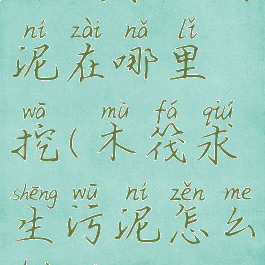 ní zài nǎ lǐ
泥在哪里
wā mù fá qiú
挖(木筏求
shēng wū ní zěn me
生污泥怎么